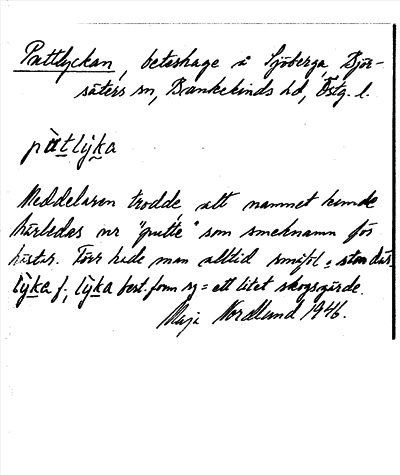 Puttlyckan, beteshage i Sjöberga, Björ-
säters sn, Bankekinds hd, Östg. l.
pùtlỳka
Meddelaren trodde, att namnet kunde
härledas ur "putte" som smeknamn för
hästar. Förr hade man alltid småföl
lỳka f., lỳka best. form sg = ett litet skogsgärde.
Maja Nordlund 1946.